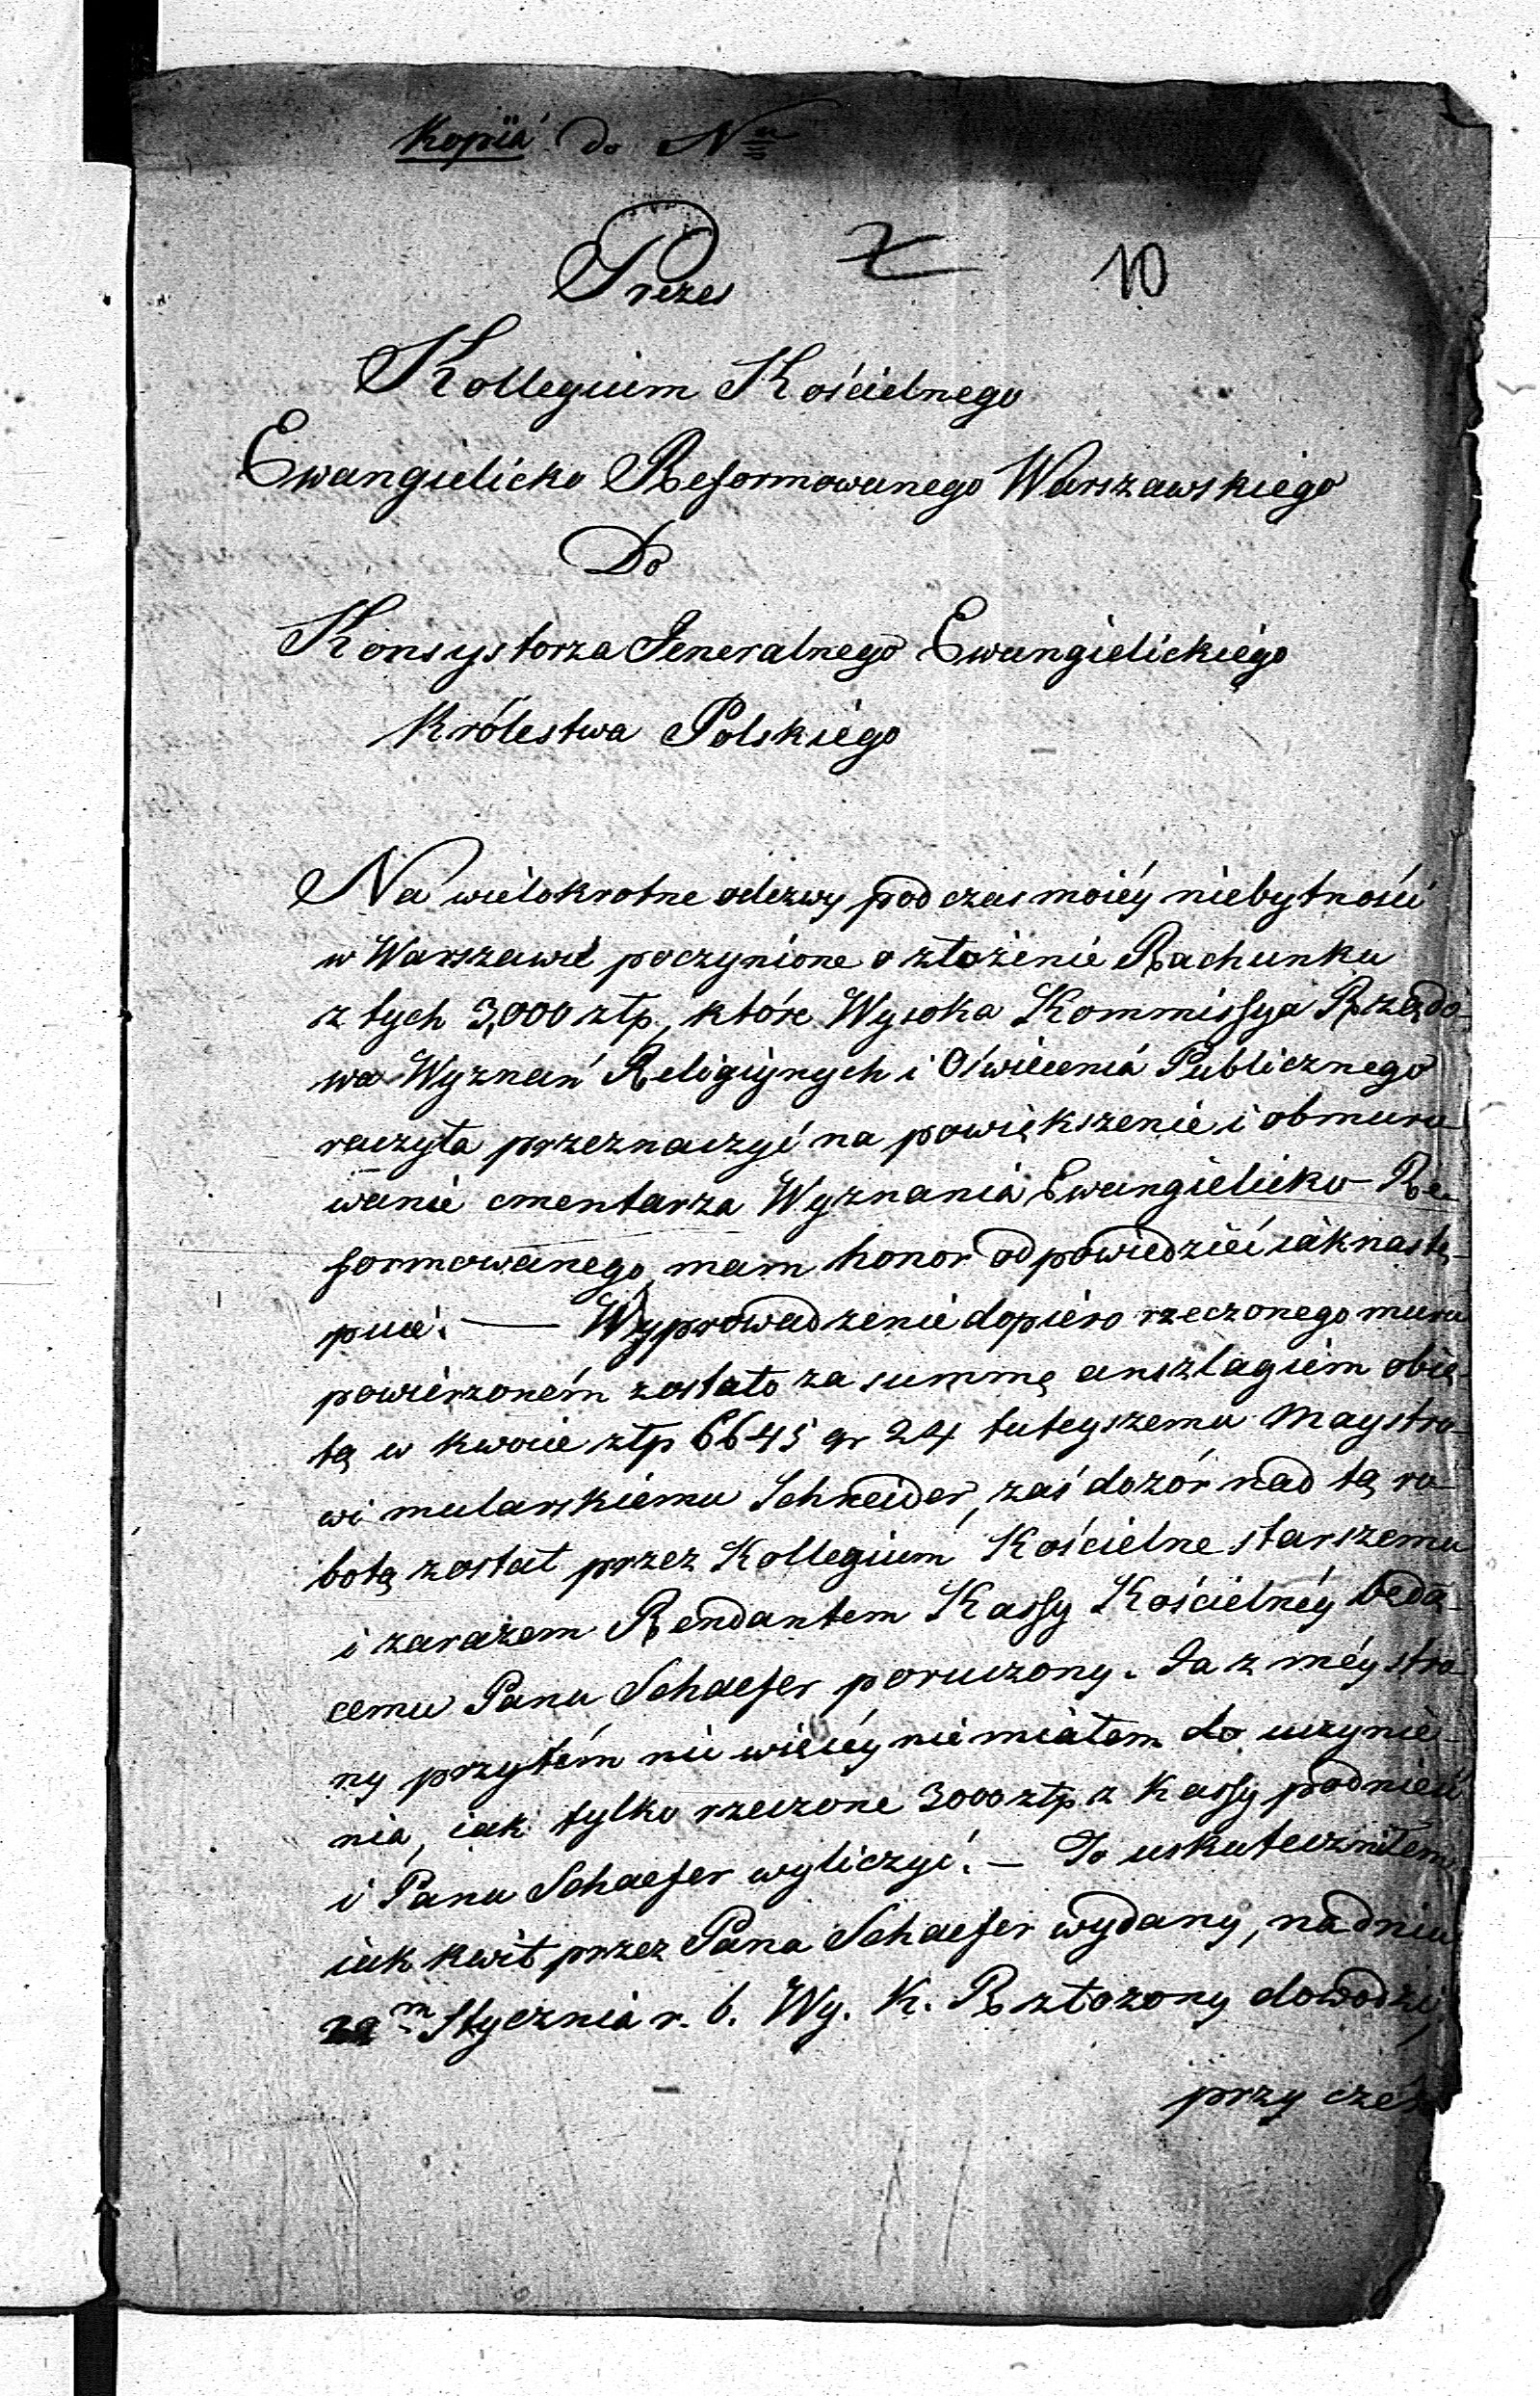 Kopiia do Nru
Prezes
10
Kollegium Kościelnego
Ewangielicko Reformowanego Warszawskiego
Do
Konsystorza Jeneralnego Ewangielickiego
Królestwa Polskiego
Na wielokrotne odezwy podczas moiéy niebytności
w Warszawie poczynione o złożenie Rachunku
z tych 3,000 złp, które Wysoka Kommissya Rządo-
wa Wyznań Religiynych i Oświecenia Publicznego
raczyła przeznaczyć na powiększenie i obmuro
wanie cmentarza Wyznania Ewangielicko-Re-
formowanego, mam honor odpowiedzieć iak nastę-
puie. — Wyprowadzenie dopiéro rzeczonego muru
powierzoném zostało za summę anszlagiem obię-
tą w kwocie złp 6645 gr 24 tuteyszemu Maystro-
wi mularskiemu Schneider, zaś dozór nad tą ro-
botą został przez Kollegium Kościelne starszemu
i zarazem Rendantem Kassy Kościelnéy będą-
cemu Panu Schaefer poruczony. Ja z méy stro-
ny przytém nic więcéy nie miałem do uczynie-
nia, iak tylko rzeczone 3000 złp z Kassy podnieść
i Panu Schaefer wyliczyć. — To uskuteczniłem
iak kwit przez Pana Schaefer wydany, na dniu
m Stycznia r. b. Wy. K. R złożony dowodzi,
przy czém